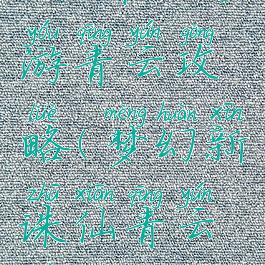 yóu qīng yún gōng
游青云攻
luè mèng huàn xīn
略(梦幻新
zhū xiān qīng yún
诛仙青云